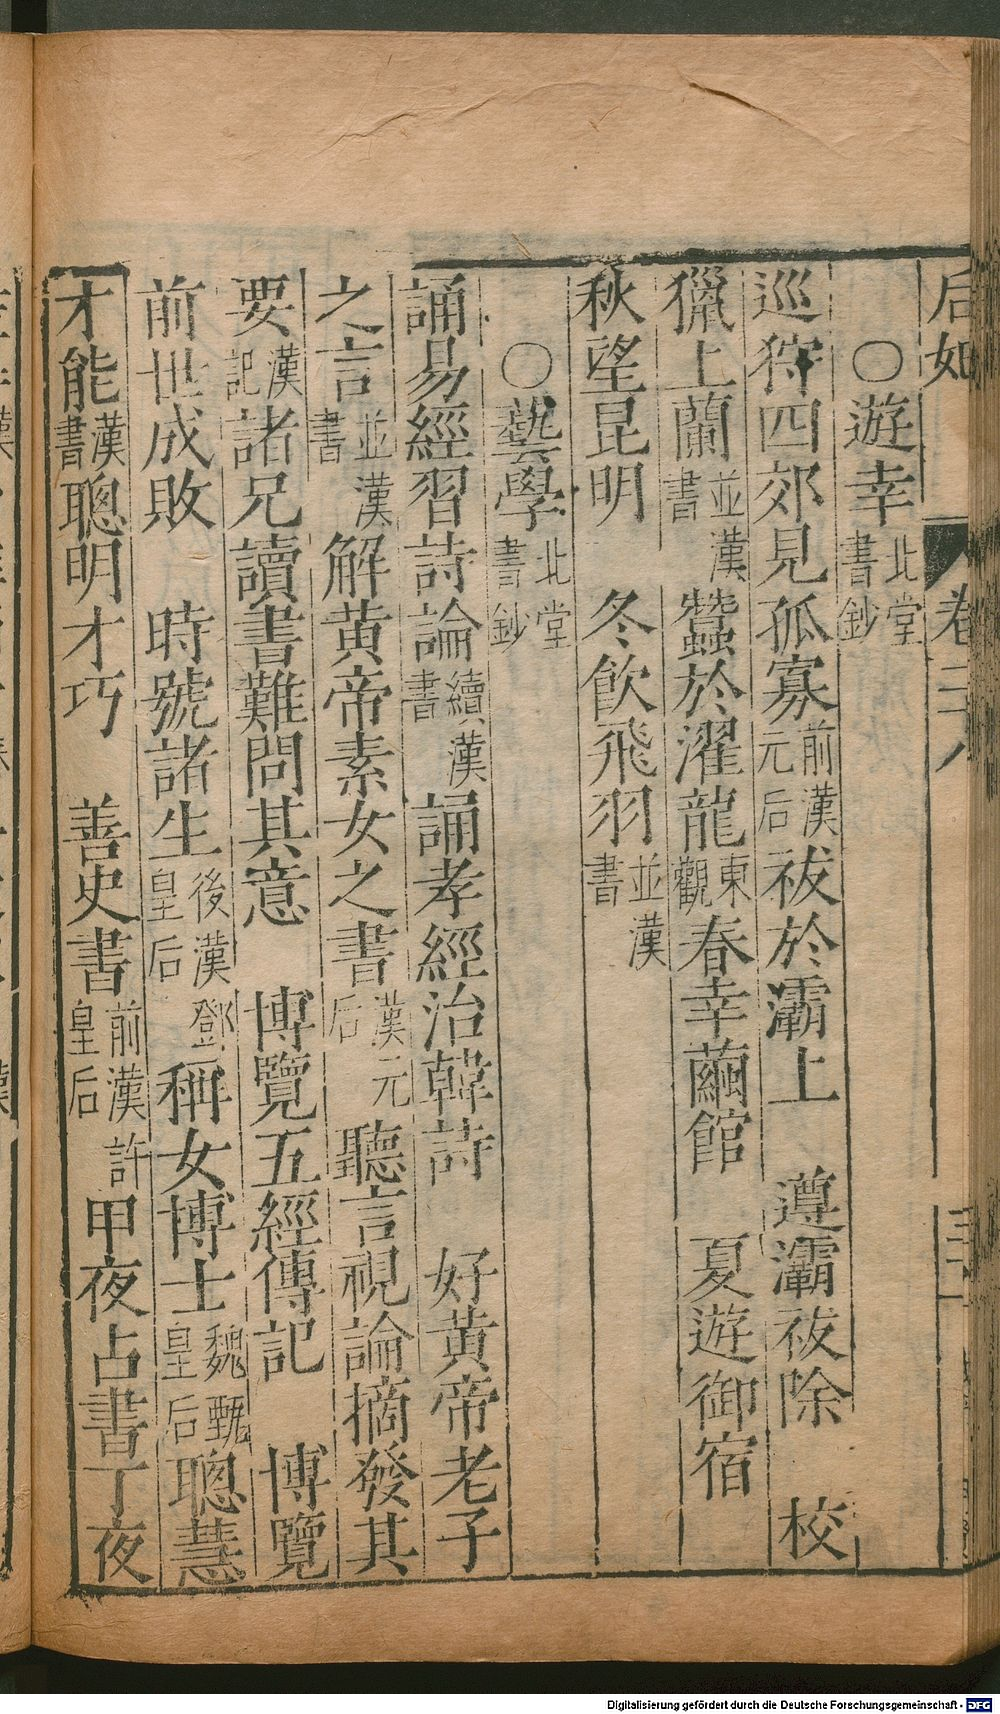 后妃 卷二十八
○遊幸北堂書鈔
巡狩四郊見孤寡前漢元后祓於灞上 遵灞祓除 校
獵上蘭並漢書 蠶於濯龍東觀春幸繭館 夏遊御宿
秋望昆明 冬飲飛羽並漢書
○藝學北堂書鈔
誦易經習詩論續漢書 誦孝經治韓詩 好黄帝老子
之言並漢書 解黄帝素女之書漢元后 聽言視論摘發其
要漢記諸兄讀書難問其意 博覽五經傳記 博覽
前世成敗 時號諸生後漢鄧皇后稱女博士魏甄皇后聰慧
才能漢書聰明才巧 善史書前漢許皇后甲夜占書丁夜
Digitalisierung gefördert durch die Deutsche Forschungsgemeinschaft - DFG